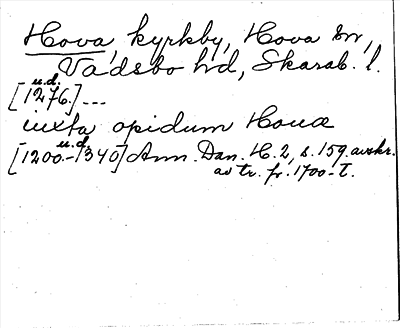 Hova, kyrkby, Hova sn,
Vadsbo hd, Skarab. l.
u.d.
[1276.] ...
iuxta opidum Houæ
u.d.
[1200.-1340] Ann. Dan. H. 2, s. 159. avskr.
av tr. fr. 1700-t.